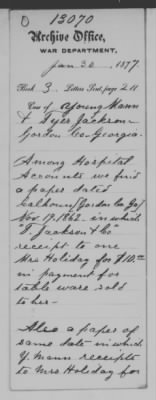 13070
Archive Office,
WAR DEPARTMENT,
Jan 30, 1877.
Book 3. Letters Sent, page 211
Case of Young Mann
& Tyer Jackson
Gordon Co. Georgia.
Among Hospital
Accounts we find
a paper dated
Calhoun [Gordon Co Ga]
Nov 19. 1862. in which
Jackson & Co"
receipt to one
Mrs Holiday for $10.00
in payment for
table ware sold
to her—
Also a paper of
same date in which
Y. Mann receipts
to Mrs Holiday for